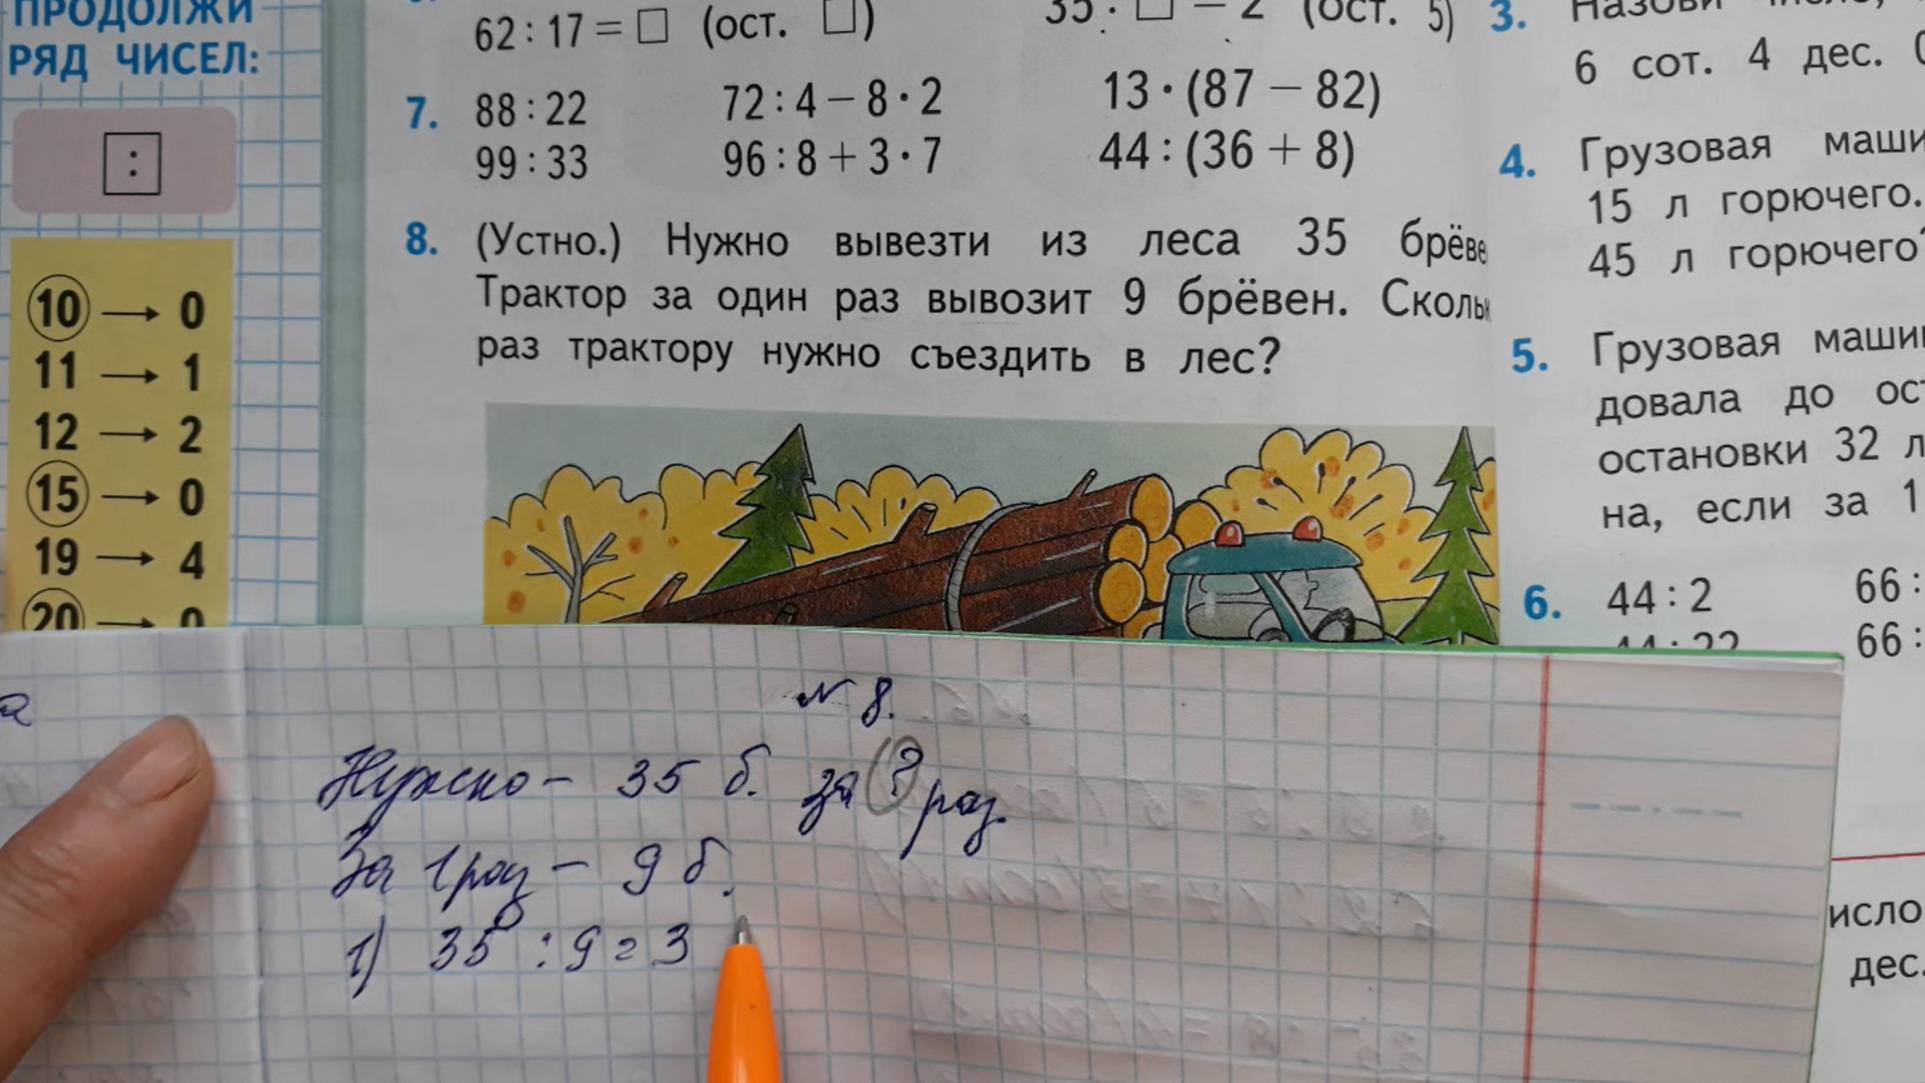 ПРОДОЛЖИ
РЯД ЧИСЕЛ:
:
10 → 0
11 → 1
12 → 2
15 → 0
19 → 4
20 → 0
62 : 17 = □ (ост. □)
35 : □ = 2 (ост. 5)
7. 88 : 22 72 : 4 – 8 · 2 13 · (87 – 82)
99 : 33 96 : 8 + 3 · 7 44 : (36 + 8)
8. (Устно.) Нужно вывезти из леса 35 брёве
Трактор за один раз вывозит 9 брёвен. Скольк
раз трактору нужно съездить в лес?
3. Назови число,
6 сот. 4 дес.
4. Грузовая маши
15 л горючего.
45 л горючего
5. Грузовая машин
довала до ост
остановки 32 л
на, если за 1
6. 44 : 2 66 :
44 : 22 66 :
исло
дес.
а
N 8.
Нужно – 35 б. за ? раз.
За 1 раз – 9 б.
1) 35 : 9 = 3